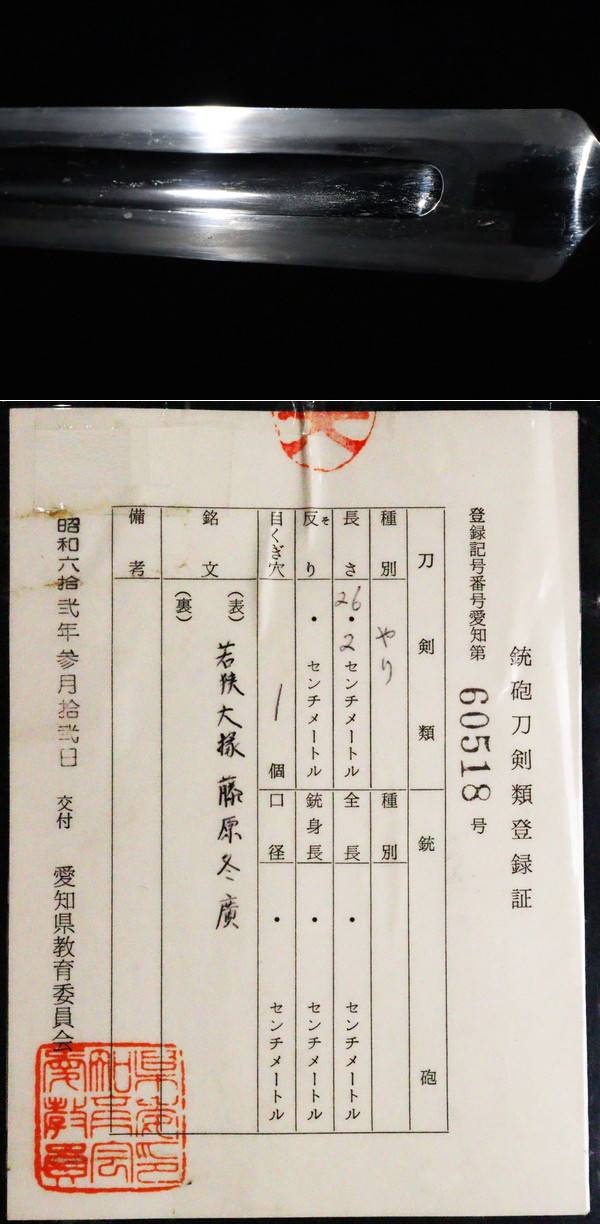 銃砲刀剣類登録証
登録記号番号愛知第 60518 号
刀剣類 銃砲
種別 やり 種別
長さ 26・2 センチメートル 全長 ・ センチメートル
反り そ ・ センチメートル 銃身長 ・ センチメートル
目くぎ穴 1 個 口径 ・ センチメートル
銘文 (表) 若狭大掾藤原冬廣
(裏)
備考
昭和六拾弐年参月拾弐日 交付 愛知県教育委員会